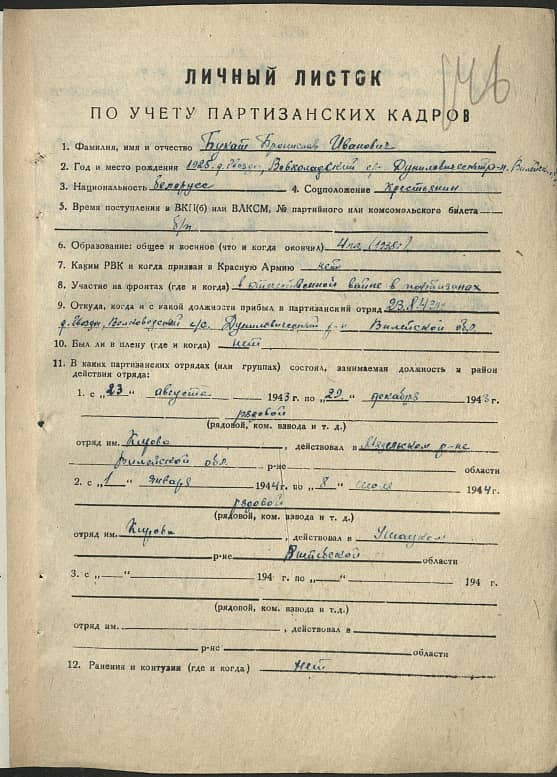 146
ЛИЧНЫЙ ЛИСТОК
ПО УЧЕТУ ПАРТИЗАНСКИХ КАДРОВ
1. Фамилия, имя и отчество Букат Бронислав Иванович
2. Год и место рождения 1925 д. Гвозды, с/с Дуниловичский р-н
3. Национальность белорусс 4. Соцположение Крестьянин
5. Время поступления в ВКП(б) или ВЛКСМ, № партийного или комсомольского билета
б/п
6. Образование: общее и военное (что и когда окончил) 4 кл (1938г)
7. Каким РВК и когда призван в Красную Армию нет
8. Участие на фронтах (где и когда) в отечественной войне в партизанах
9. Откуда, когда и с какой должности прибыл в партизанский отряд 23.8.43г.
с/с. Дуниловичский р-н Вилейской обл.
10. Был ли в плену (где и когда) нет
11. В каких партизанских отрядах (или группах) состоял, занимаемая должность и район
действия отряда:
1. с „23" августа 1943 г. по „29" декабря 1943 г.
рядовой
(рядовой, ком. взвода и т. д.)
отряд им. Кирова, действовал в Мядельском р-не
Вилейской обл. р-не области
2. с „1" января 1944 г. по „8" июля 1944 г.
рядовой
(рядовой, ком. взвода и т. д.)
отряд им. Кирова, действовал в Ушацком
р-не Витебской области
3. с „ " 194 г. по „ " 194 г.
(рядовой, ком. взвода и т.д.)
отряд им. , действовал в
р-не области
12. Ранения и контузии (где и когда) нет